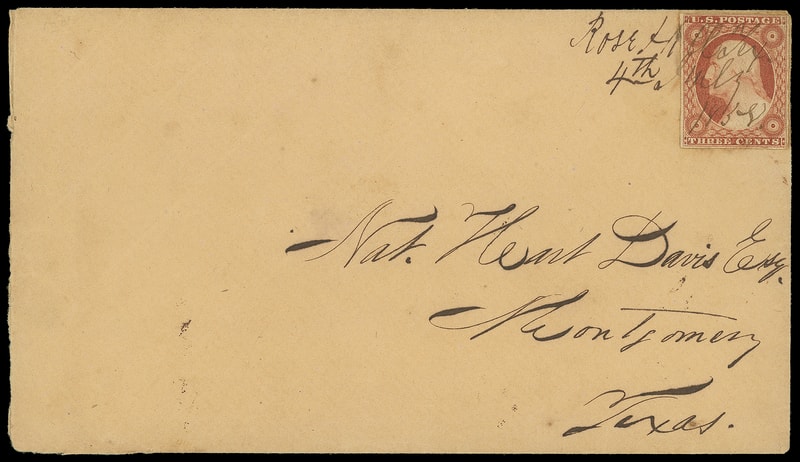 Rose Hill
4th July
1858.
U.S. POSTAGE
THREE CENTS
Nat. Heart Davis Esq.
Montgomery
Texas.